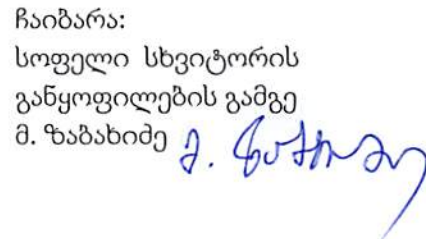 ჩაიბარა:
სოფელი სხვიტორის
განყოფილების გამგე
მ. ზაბახიძე